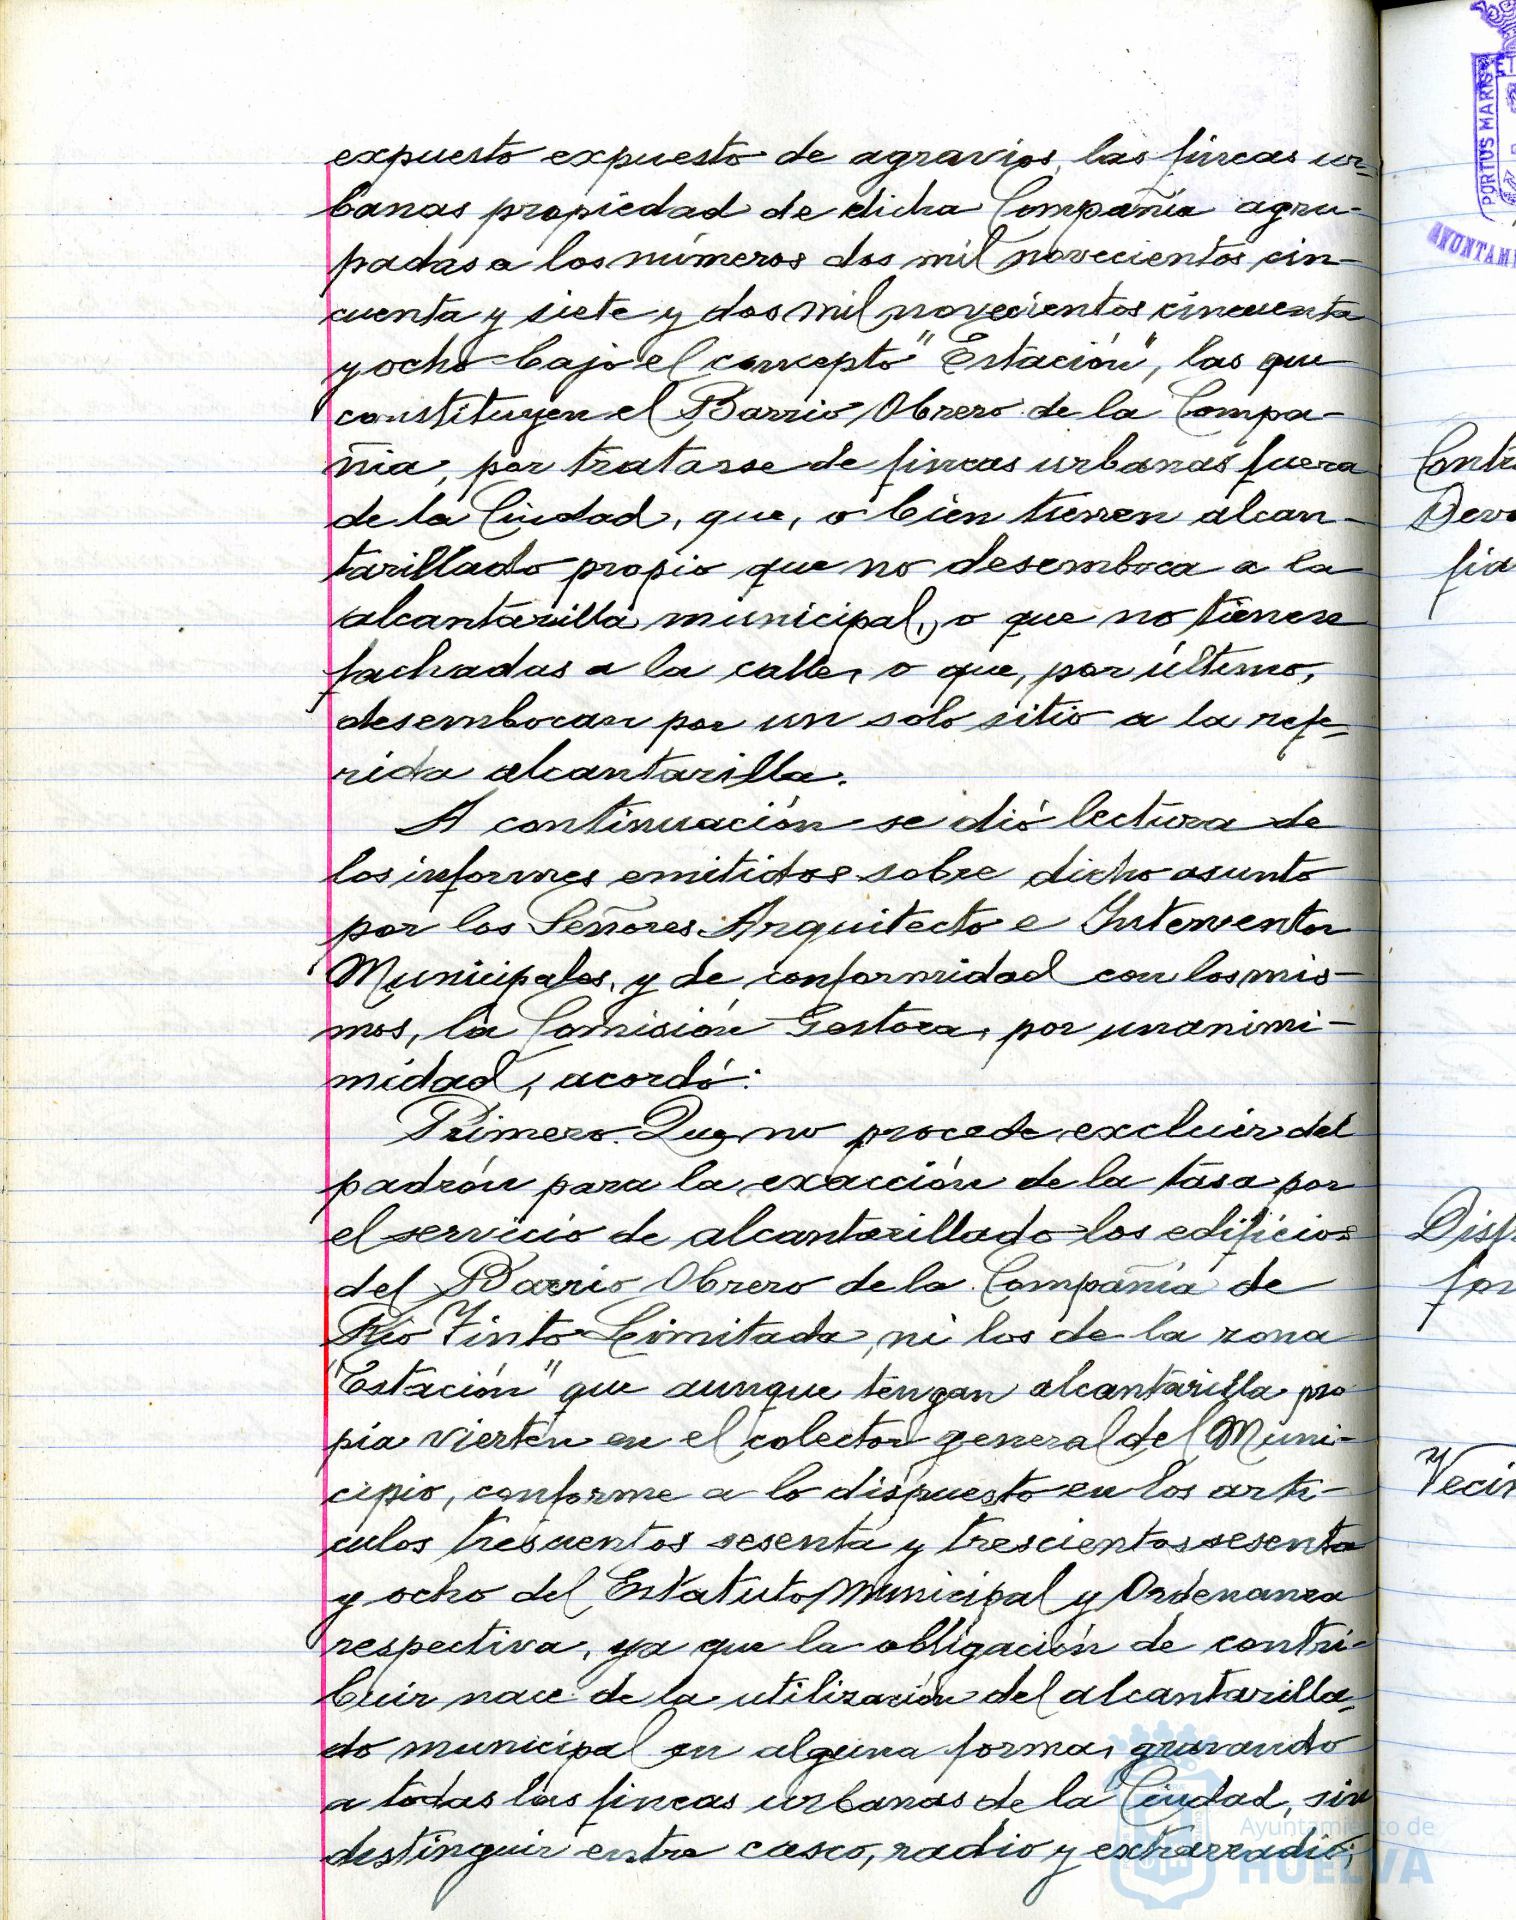 expuesto expuesto de agravios, las fincas ur-
banas propiedad de dicha Compañia agru-
padas a los números dos mil novecientos cin-
cuenta y siete y dos mil novecientos cincuenta
y ocho bajo el concepto "Estación", las que
constituyen el Barrio Obrero de la Compa-
ñia, por tratarse de fincas urbanas fuera
de la Ciudad, que, o bien tienen alcan-
tarillado propio que no desemboca a la
alcantarilla municipal, o que no tienen
fachadas a la calle, o que, por último,
desembocan por un solo sitio a la refe-
rida alcantarilla.
A continuación se dió lectura de
los informes emitidos sobre dicho asunto
por los Señores Arquitecto e Interventor
Municipales, y de conformidad con los mis-
mos, la Comisión Gestora, por unanimi-
midad, acordó:
Primero. Que no procede excluir del
padrón para la exacción de la tasa por
el servicio de alcantarillado los edificios
del Barrio Obrero de la Compañia de
Rio Tinto Limitada, ni los de la zona
"Estación" que aunque tengan alcantarilla pro
pia vierten en el colector general del Muni-
cipio, conforme a lo dispuesto en los arti-
culos trescientos sesenta y trescientos sesenta
y ocho del Estatuto Municipal y Ordenanza
respectiva, ya que la obligación de contri-
buir nace de la utilización del alcantarilla-
do municipal en alguna forma, gravando
a todas las fincas urbanas de la Ciudad, sin
distinguir entre casco, radio y extrarradio;
PORTUS MARIS
AYUNTAMI
Contr
Devo
fia
Dist
for
Vecin
Ayuntamiento de
HUELVA